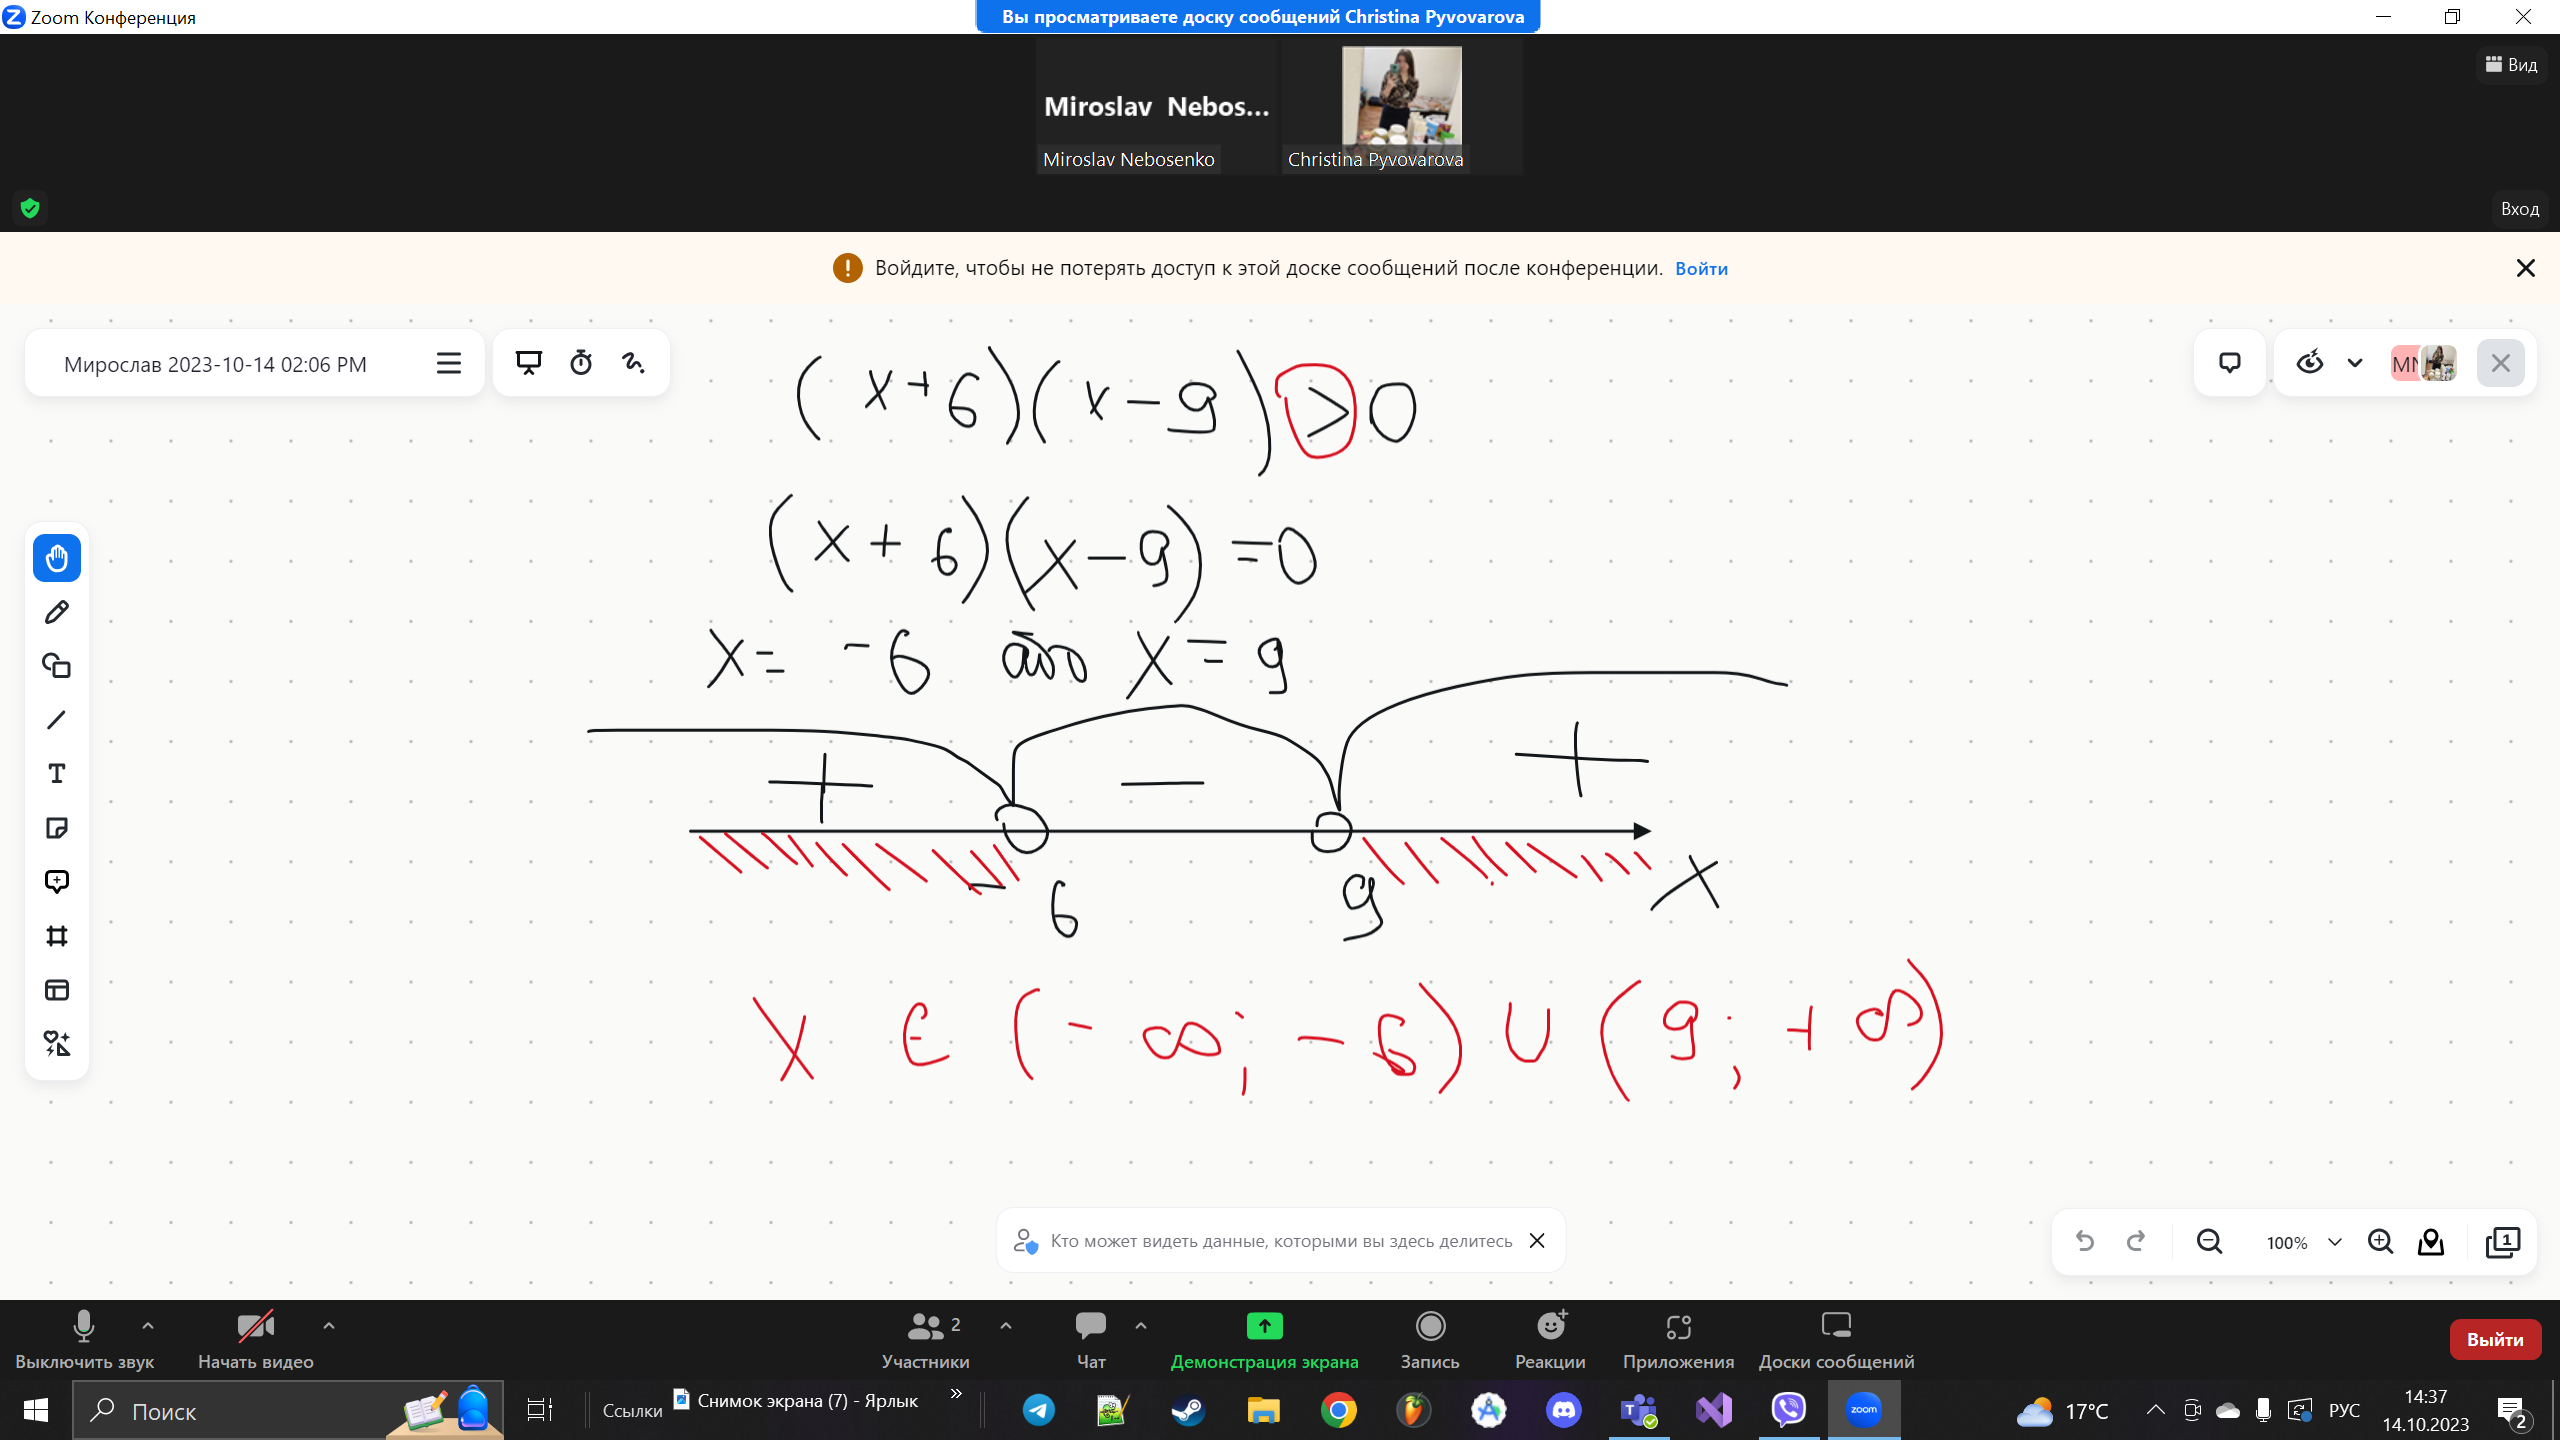 Zoom Конференция
Вы просматриваете доску сообщений Christina Pyvovarova
Вид
Miroslav Nebos...
Miroslav Nebosenko
Christina Pyvovarova
Вход
Войдите, чтобы не потерять доступ к этой доске сообщений после конференции. Войти
Мирослав 2023-10-14 02:06 PM
(x+6)(x-9)>0
(x+6)(x-9)=0
x = -6 або x = 9
+ − +
-6 9 x
x ∈ (-∞; -6) ∪ (9; +∞)
Кто может видеть данные, которыми вы здесь делитесь
100%
1
2
Выключить звук
Начать видео
Участники
Чат
Демонстрация экрана
Запись
Реакции
Приложения
Доски сообщений
Выйти
Поиск
Ссылки
Снимок экрана (7) - Ярлык
zoom
17°C
РУС
14:37
14.10.2023
2